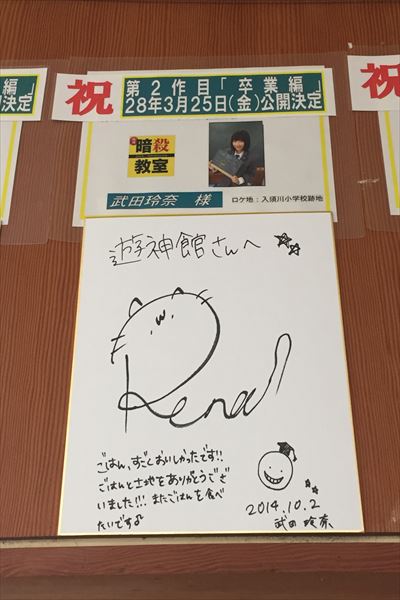 編」
決定
祝
第2作目「卒業編」
28年3月25日(金)公開決定
祝
暗殺
教室
武田玲奈 様
ロケ地:入須川小学校跡地
遊神館さんへ
Rena
ごはん、すごくおいしかったです!!
ごはんと土地をありがとうござ
いました!!! またごはんを食べ
たいです♪
2014.10.2
武田 玲奈